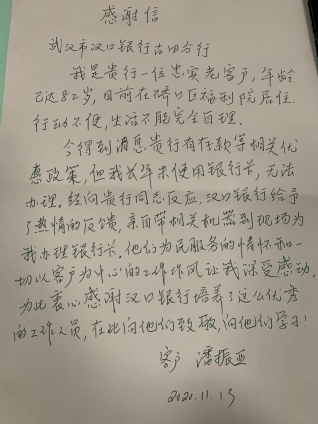 感谢信
武汉市汉口银行古田分行
我是贵行一位忠实老客户，年龄
已达82岁，目前在硚口区福利院居住.
行动不便，生活不能完全自理.
今得到消息贵行有存款等相关优
惠政策，但我长年未使用银行卡，无法
办理.经向贵行同志反应，汉口银行给予
了热情的反馈，亲自带相关机器到现场为
我办理银行卡.他们为民服务的情怀和一
切以客户为中心的工作作风让我深受感动.
为此衷心感谢汉口银行培养了这么优秀
的工作人员，在此向他们致敬，向他们学习！
客户 潘振亚
2020.11.13